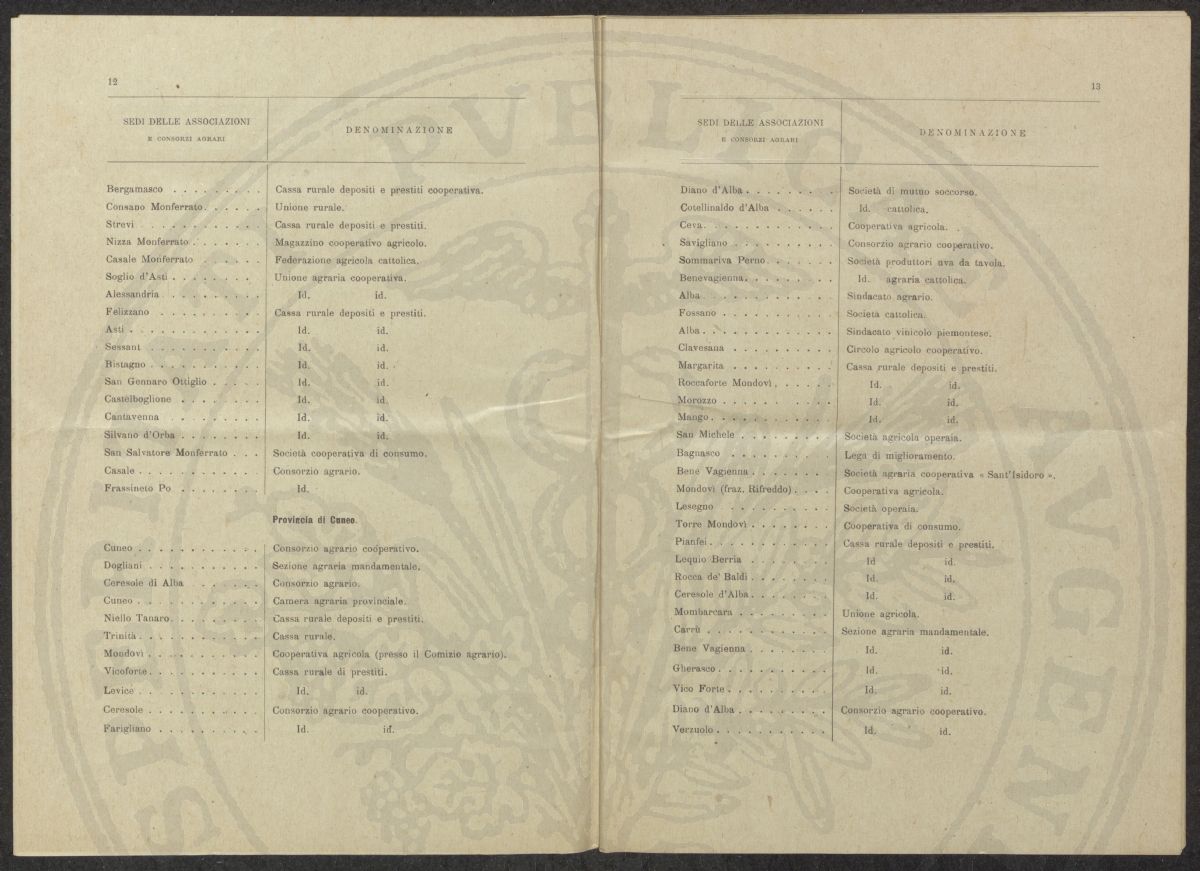 12
SEDI DELLE ASSOCIAZIONI
E CONSORZI AGRARI
DENOMINAZIONE
Bergamasco . . . . . . . . . Cassa rurale depositi e prestiti cooperativa.
Consano Monferrato. . . . . . Unione rurale.
Strevi . . . . . . . . . . . Cassa rurale depositi e prestiti.
Nizza Monferrato . . . . . . . Magazzino cooperativo agricolo.
Casale Monferrato . . . . . . Federazione agricola cattolica.
Soglio d'Asti . . . . . . . . Unione agraria cooperativa.
Alessandria . . . . . . . . . Id. id.
Felizzano . . . . . . . . . Cassa rurale depositi e prestiti.
Asti . . . . . . . . . . . . Id. id.
Sessant . . . . . . . . . . Id. id.
Bistagno . . . . . . . . . . Id. id.
San Gennaro Ottiglio . . . . . Id. id.
Castelboglione . . . . . . . Id. id.
Cantavenna . . . . . . . . Id. id.
Silvano d'Orba . . . . . . . Id. id.
San Salvatore Monferrato . . . Società cooperativa di consumo.
Casale . . . . . . . . . . . Consorzio agrario.
Frassineto Po . . . . . . . Id.
Provincia di Cuneo.
Cuneo . . . . . . . . . . . Consorzio agrario cooperativo.
Dogliani . . . . . . . . . . Sezione agraria mandamentale.
Ceresole di Alba . . . . . . Consorzio agrario.
Cuneo . . . . . . . . . . . Camera agraria provinciale.
Niello Tanaro. . . . . . . . Cassa rurale depositi e prestiti.
Trinità . . . . . . . . . . . Cassa rurale.
Mondovì . . . . . . . . . . Cooperativa agricola (presso il Comizio agrario).
Vicoforte. . . . . . . . . . Cassa rurale di prestiti.
Levice . . . . . . . . . . . Id. id.
Ceresole . . . . . . . . . . Consorzio agrario cooperativo.
Farigliano . . . . . . . . . Id. id.
13
SEDI DELLE ASSOCIAZIONI
E CONSORZI AGRARI
DENOMINAZIONE
Diano d'Alba . . . . . . . . Società di mutuo soccorso.
Cotellinaldo d'Alba . . . . . Id. cattolica.
Ceva. . . . . . . . . . . . Cooperativa agricola.
Savigliano . . . . . . . . . Consorzio agrario cooperativo.
Sommariva Perno. . . . . . . Società produttori uva da tavola.
Benevagienna. . . . . . . . Id. agraria cattolica.
Alba . . . . . . . . . . . . Sindacato agrario.
Fossano . . . . . . . . . . Società cattolica.
Alba. . . . . . . . . . . . Sindacato vinicolo piemontese.
Clavesana . . . . . . . . . Circolo agricolo cooperativo.
Margarita . . . . . . . . . Cassa rurale depositi e prestiti.
Roccaforte Mondovì . . . . . Id. id.
Morozzo . . . . . . . . . . Id. id.
Mango . . . . . . . . . . . Id. id.
San Michele . . . . . . . . Società agricola operaia.
Bagnasco . . . . . . . . . Lega di miglioramento.
Bene Vagienna . . . . . . . Società agraria cooperativa « Sant'Isidoro ».
Mondovì (fraz. Rifreddo) . . . . Cooperativa agricola.
Lesegno . . . . . . . . . . Società operaia.
Torre Mondovì . . . . . . . Cooperativa di consumo.
Pianfei . . . . . . . . . . . Cassa rurale depositi e prestiti.
Lequio Berria . . . . . . . Id id.
Rocca de' Baldi . . . . . . . Id. id.
Ceresole d'Alba. . . . . . . Id. id.
Mombarcara . . . . . . . . Unione agricola.
Carrù . . . . . . . . . . . Sezione agraria mandamentale.
Bene Vagienna . . . . . . . Id. id.
Gherasco . . . . . . . . . . Id. id.
Vico Forte . . . . . . . . . Id. id.
Diano d'Alba . . . . . . . . Consorzio agrario cooperativo.
Verzuolo . . . . . . . . . . Id. id.